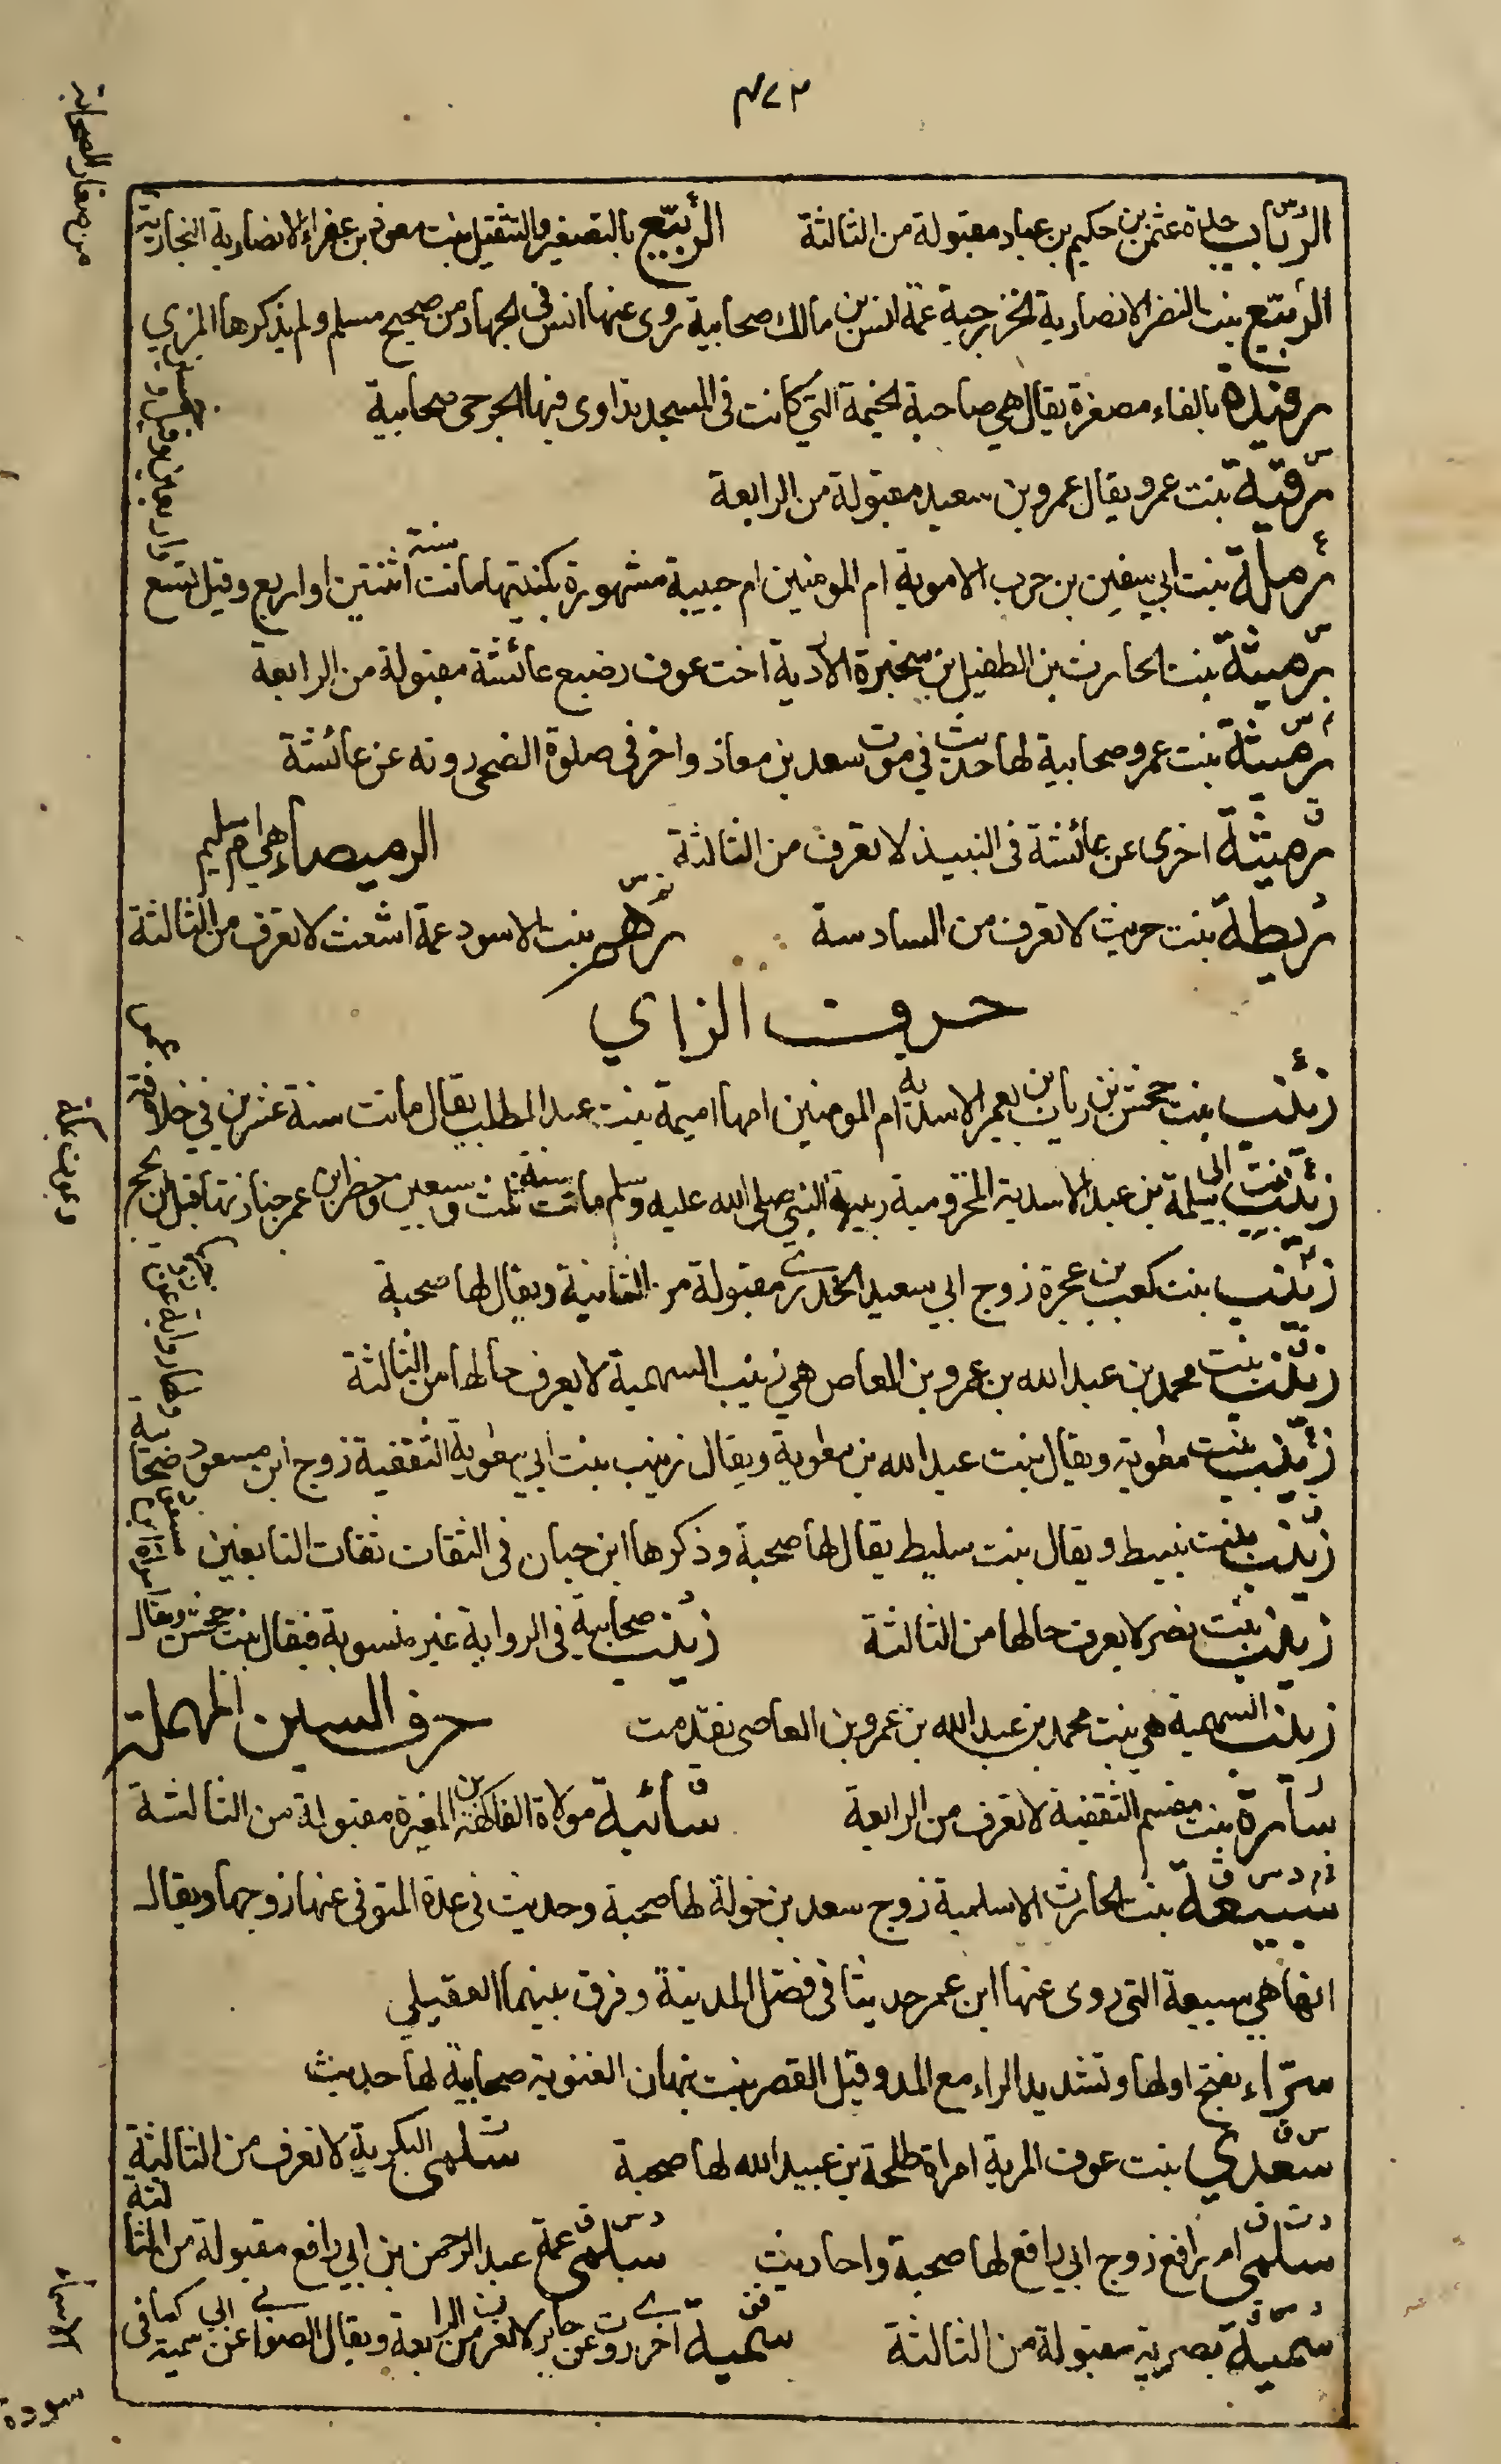 ٣٧٣
الرباب جدة عثمن بن حكيم بن عباد مقبولة من الثالثة الربيع بالتصغير والتثقيل بنت معوذ بن عفراء الانصارية النجارية
من صغار الصحابة
الربيع بنت النضر الانصارية الخزرجية عمة انس بن مالك صحابية روى عنها انس فى الجهاد من صحيح مسلم ولم يذكرها المزي
رفيدة بالفاء مصغرة يقال هي صاحبة الخيمة التي كانت فى المسجد يداوى فيها الجرحى صحابية
رقية بنت عمرو يقال عمرو بن سعيد مقبولة من الرابعة
رملة بنت ابي سفين بن حرب الاموية ام المومنين ام حبيبة مشهورة بكنيتها ماتت سنة اثنتين او اربع وقيل تسع
واربعين وقيل
رميثة بنت الحارث بن الطفيل بن سخبرة الازدية اخت عوف رضيع عائشة مقبولة من الرابعة
رميثة بنت عمرو صحابية لها حديث في موت سعد بن معاذ واخر فى صلوة الضحى روته عن عائشة
رميثة اخرى عن عائشة فى النبيذ لا تعرف من الثالثة الرميصاء هي ام سليم
ريطة بنت حريث لا تعرف من السادسة رهم بنت الاسود عمة اشعث لا تعرف من الثالثة
حرف الزاي
زينب بنت جحش بن رياب بن يعمر الاسدية ام المومنين امها اميمة بنت عبد المطلب يقال ماتت سنة عشرين في خلافة عمر
زينب بنت ابى سلمة بن عبد الاسد المخزومية ربيبة النبي صلى الله عليه وسلم ماتت سنة ثلث وسبعين وحضر ابن عمر جنازتها قبل ان يحج
ويموت بمكة
زينب بنت كعب بن عجرة زوج ابي سعيد الخدري مقبولة من الثانية ويقال لها صحبة
زينب بنت محمد بن عبد الله بن عمرو بن العاص هي زينب السهمية لا يعرف حالها من الثالثة
زينب بنت معوية ويقال بنت عبد الله بن معوية ويقال زينب بنت ابي معوية الثقفية زوج ابن مسعود صحابية
ولها رواية عن زوجها
زينب بنت نبيط ويقال بنت سليط يقال لها صحبة وذكرها ابن حبان فى الثقات ثقات التابعين
زينب بنت نصر لا يعرف حالها من الثالثة زينب صحابية فى الرواية غير منسوبة فيقال بنت جحش ويقال
امراة ابن مسعود
زينب السهمية هي بنت محمد بن عبد الله بن عمرو بن العاصى تقدمت حرف السين المهملة
سارة بنت مقسم الثقفية لا تعرف من الرابعة سائبة مولاة الفاكه بن المغيرة مقبولة من الثالثة
سبيعة بنت الحارث الاسلمية زوج سعد بن خولة لها صحبة وحديث فى عدة المتوفى عنها زوجها ويقال
انها هي سبيعة التى روى عنها ابن عمر حديثا فى فضل المدينة وفرق بينهما العقيلي
سراء بفتح اولها وتشديد الراء مع المد وقيل القصر بنت نبهان الغنوية صحابية لها حديث
سعدى بنت عوف المرية امراة طلحة بن عبيد الله لها صحبة سلمى البكرية لا تعرف من الثالثة
سلمى ام رافع زوج ابي رافع لها صحبة واحاديث سلمى عمة عبد الرحمن بن ابي رافع مقبولة من الثالثة
سمية بصرية مقبولة من الثالثة سمية اخرى روت عن جابر لا تعرف من الرابعة ويقال الصواب عن ابي سمية كما فى
الاسماء
سودة